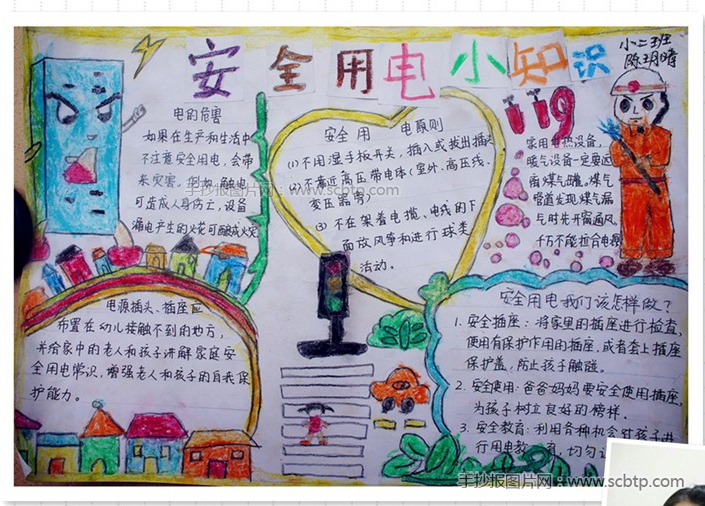 安全用电小知识
小二班
陈玥晴
电的危害
如果在生产和生活中
不注意安全用电,会带
来灾害。例如,触电
可造成人身伤亡,设备
漏电产生的火花可能酿成火灾
安全用电原则
(1)不用湿手扳开关,插入或拔出插头
(2)不靠近高压带电体(室外、高压线、
变压器旁)
(3)不在架着电缆、电线的下
面放风筝和进行球类
活动。
家用电热设备,
暖气设备一定要远
离煤气罐。煤气
管道发现煤气漏
气时先开窗通风,
千万不能拉合电源
手抄报图片网:www.scbtp.com
电源插头、插座应
布置在幼儿接触不到的地方,
并给家中的老人和孩子讲解家庭安
全用电常识,增强老人和孩子的自我保
护能力。
安全用电我们该怎样做?
1.安全插座:将家里的插座进行检查,
使用有保护作用的插座,或者套上插座
保护盖,防止孩子触碰。
2.安全使用:爸爸妈妈要安全使用插座,
为孩子树立良好的榜样。
3.安全教育:利用各种机会对孩子进
行用电教育,切勿
手抄报图片网:www.scbtp.com